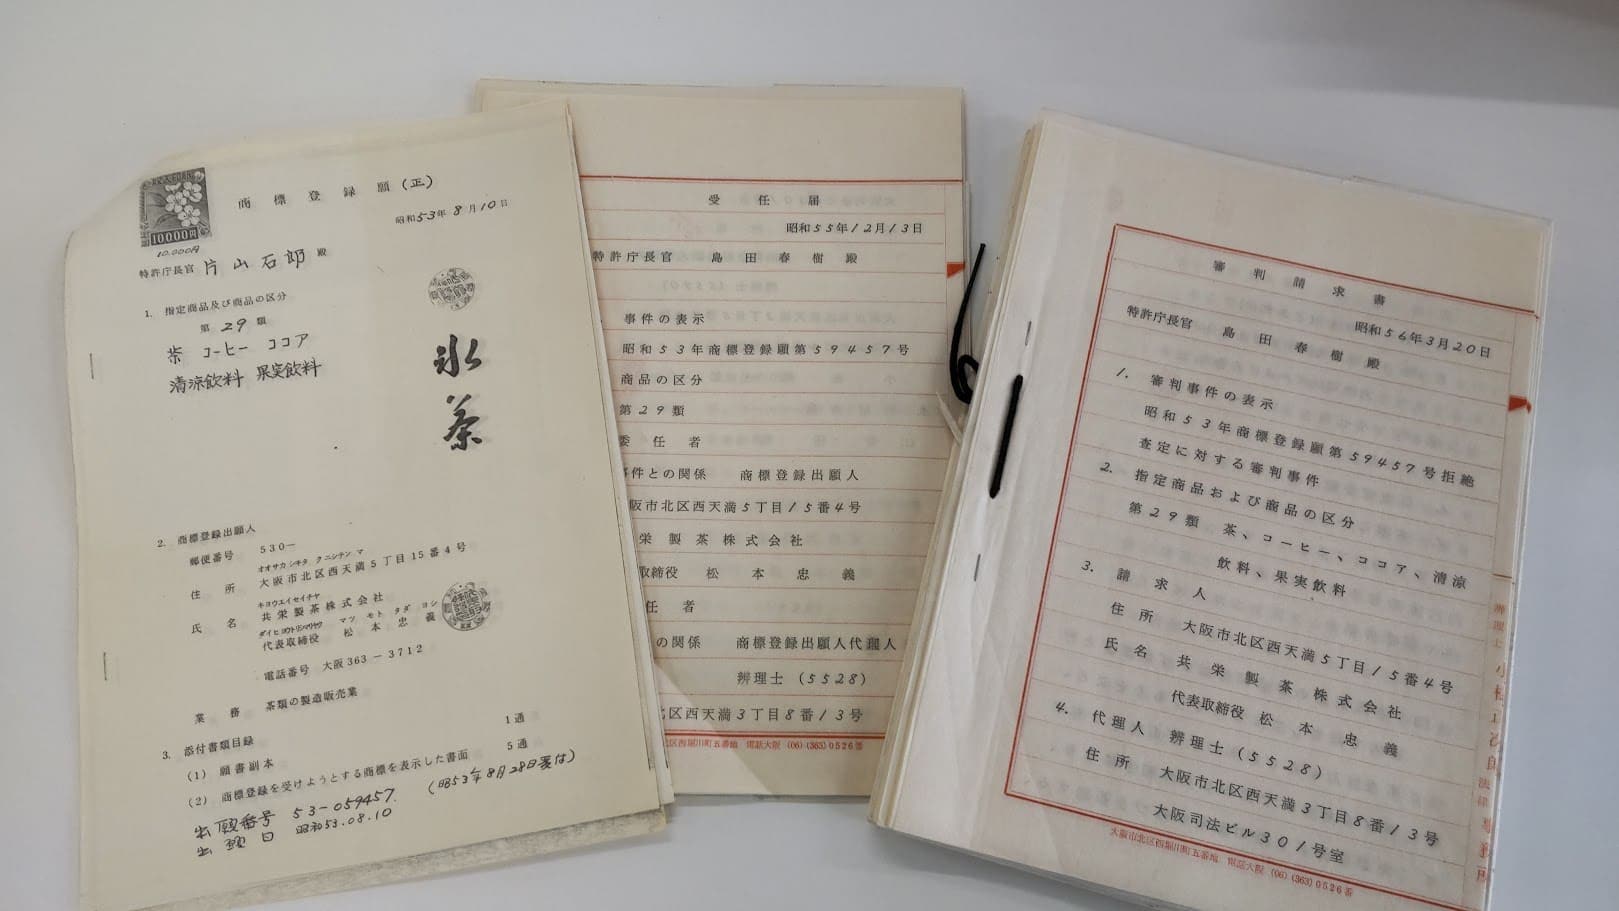 商標登録願(正)
10000円
10.000円
昭和53年8月10日
特許庁長官 片山石郎 殿
1. 指定商品及び商品の区分
第29類
茶 コーヒー ココア
清涼飲料 果実飲料
氷茶
2. 商標登録出願人
郵便番号 530-
オオサカシキタクニシテンマ
住所 大阪市北区西天満5丁目15番4号
キヨウエイセイチヤ
氏名 共栄製茶株式会社
ダイヒヨウトリシマリヤク マツモト タダヨシ
代表取締役 松本忠義
電話番号 大阪363-3712
業務 茶類の製造販売業
3. 添付書類目録
(1) 願書副本 1通
(2) 商標登録を受けようとする商標を表示した書面 5通
出願番号 53-059457. (昭53年8月28日受付)
出願日 昭和53.08.10
受任届
昭和55年12月13日
特許庁長官 島田春樹 殿
事件の表示
昭和53年商標登録願第59457号
商品の区分
第29類
委任者
事件との関係 商標登録出願人
阪市北区西天満5丁目15番4号
栄製茶株式会社
取締役 松本忠義
任者
の関係 商標登録出願人代理人
辨理士 (5528)
区西天満3丁目8番13号
北区西堀川町五番地 電話大阪 (06)(363)0526番
審判請求書
昭和56年3月20日
特許庁長官 島田春樹 殿
1. 審判事件の表示
昭和53年商標登録願第59457号拒絶
査定に対する審判事件
2. 指定商品および商品の区分
第29類 茶、コーヒー、ココア、清涼
飲料、果実飲料
3. 請求人
住所 大阪市北区西天満5丁目15番4号
氏名 共栄製茶株式会社
代表取締役 松本忠義
4. 代理人 辨理士 (5528)
住所 大阪市北区西天満3丁目8番13号
大阪司法ビル301号室
大阪市北区西堀川町五番地 電話大阪 (06)(363)0526番